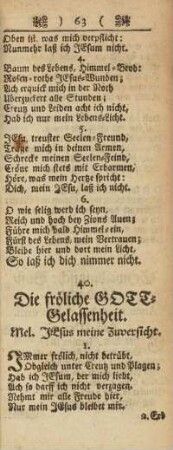 ) 63 (
Oben ist was mich verpflicht:
Nunmehr laß ich JEsum nicht.
4.
Baum des Lebens, Himmel-Brod:
Rosen-rothe JEsus-Wunden;
Ach erquick mich in der Noth
Uberzuckert alle Stunden;
Creutz und Leiden acht ich nicht,
Hab ich nur mein Lebens-Licht.
5.
JEsu, treuster Seelen-Freund,
Trage mich in deinen Armen,
Schrecke meinen Seelen-Feind,
Cröne mich stets mit Erbarmen,
Höre, was mein Hertze spricht:
Dich, mein JEsu, laß ich nicht.
6.
O wie selig werd ich seyn,
Reich und hoch bey Zions Auen;
Führe mich bald Himmel-ein,
Fürst des Lebens, mein Vertrauen;
Bleibe hier und dort mein Licht.
So laß ich dich nimmer nicht.
40.
Die fröliche GOTT-
Gelassenheit.
Mel. JEsus meine Zuversicht.
1.
IMmer frölich, nicht betrübt,
Obgleich unter Creutz und Plagen;
Hab ich JEsum, der mich liebt,
Ach so darff ich nicht verzagen.
Nehmt mir alle Freude hier,
Nur mein JEsus bleibet mir.
2.